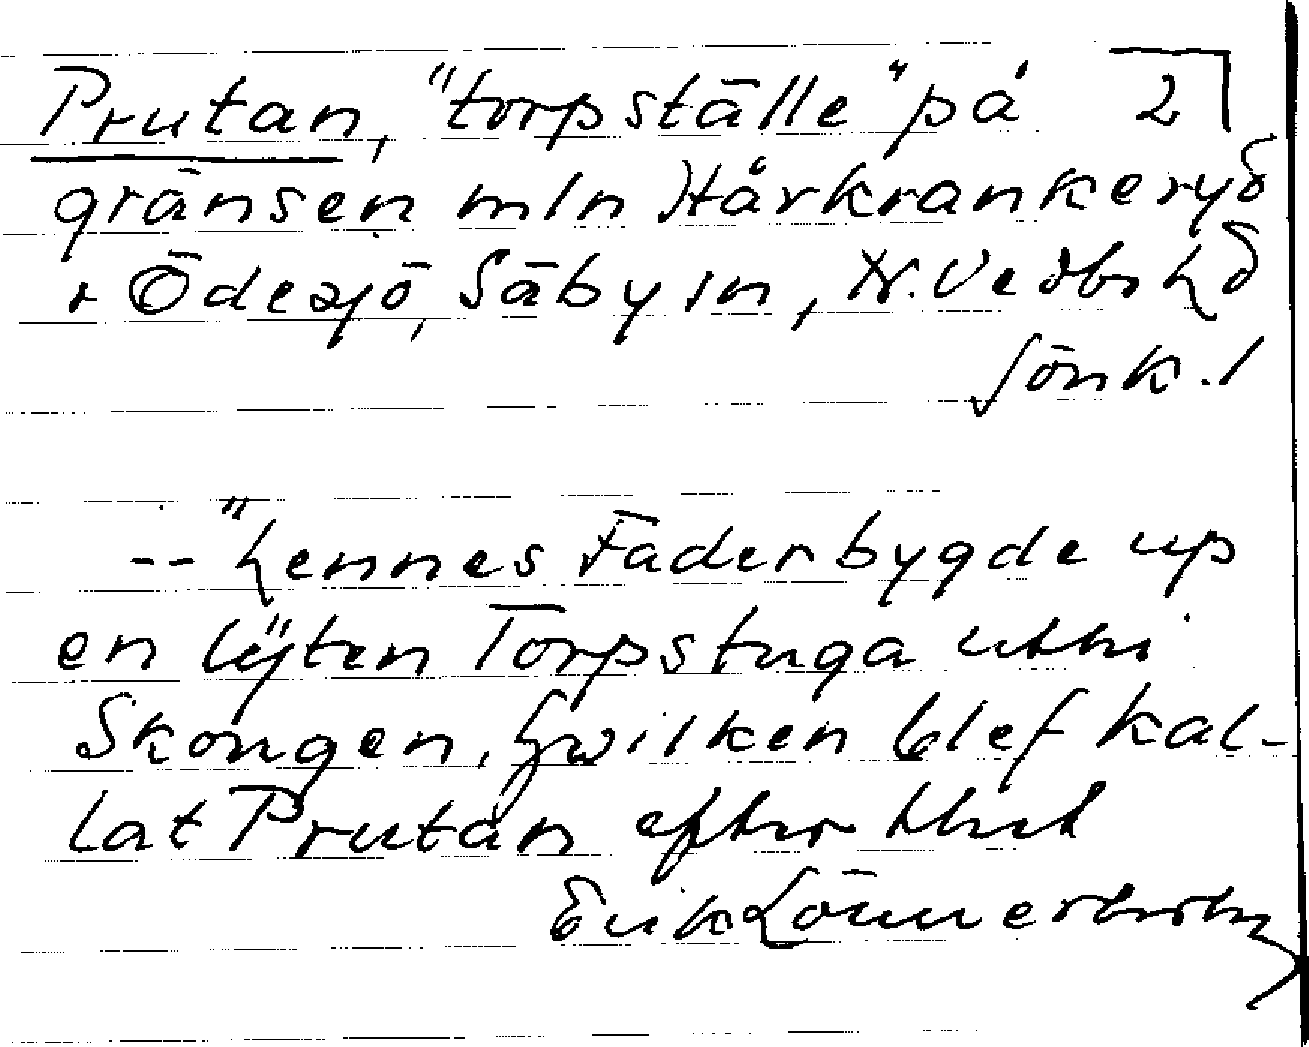 Prutan, "torpställe" på 2
gränsen mln Hårkrankeryd
o Ödesjö, Säby sn, N. Vedbo hd
Jönk. l
-- "hennes Fader bygde up
en lÿten Torpstuga uthi
Skougen, hwilken blef kal-
lat Prutan efter thet
Erik